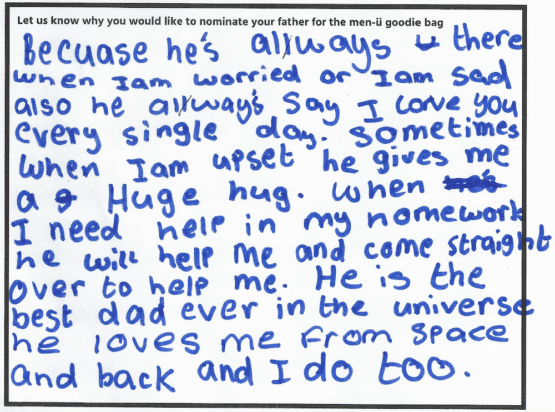 Let us know why you would like to nominate your father for the men-ü goodie bag
Becuase he's allways there
when Iam worried or Iam sad
also he allways say I love you
every single day. sometimes
when Iam upset he gives me
a Huge hug. when he's
I need help in my homework
he will help me and come straight
over to help me. He is the
best dad ever in the universe
he loves me from space
and back and I do too.